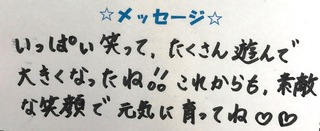 ☆メッセージ☆
いっぱい笑って、たくさん遊んで
大きくなったね!! これからも、素敵
な笑顔で元気に育ってね♡♡